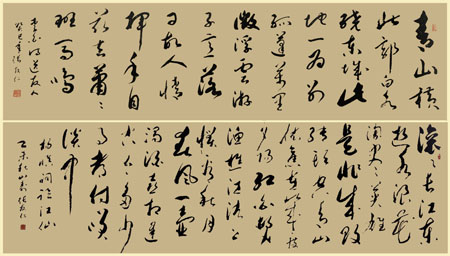 青山横
北郭白水
绕东城此
地一为别
孤蓬万里
征浮云游
子意落
日故人情
挥手自
兹去萧萧
班马鸣
李白诗送友人
癸巳年
滚滚长江东
逝水浪花
淘尽英雄
是非成败
转头空青山
依旧在几度
夕阳红白发
渔樵江渚上
惯看秋月
春风一壶
浊酒喜相逢
古今多少
事都付笑
谈中
杨慎词临江仙